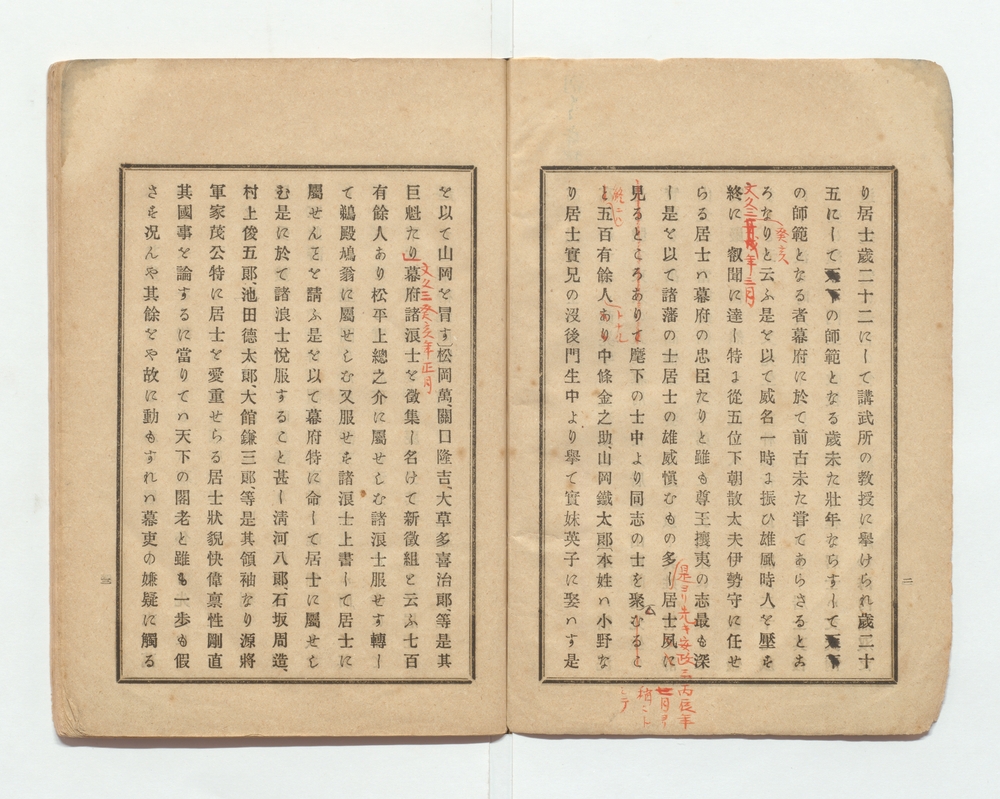 り居士歳二十二にして講武所の教授に擧けられ歳二十
五にして天下の師範となる歳未た壯年ならすして天下
の師範となる者幕府に於て前古未た嘗てあらさるとこ
ろなりと云ふ是を以て威名一時に振ひ雄風時人を壓を
癸亥
文久三年三月
終に　叡聞に達し特に從五位下朝散太夫伊勢守に任せ
らる居士ハ幕府の忠臣たりと雖も尊王攘夷の志最も深
是ヨリ先キ安政三丙辰年
し是を以て諸藩の士居士の雄威愼むもの多し居士夙に
見るところありて麾下の士中より同志の士を聚むると
トナル
と五百有餘人あり中條金之助山岡鐵太郎〔本姓ハ小野な
り居士實兄の沒後門生中より擧て實妹英子に娶ハす是
二
を以て山岡を冒す〕松岡萬、關口隆吉、大草多喜治郎、等是其
文久三癸亥年正月
巨魁たり幕府諸浪士を徴集し名けて新徴組と云ふ七百
有餘人あり松平上總之介に屬せしむ諸浪士服せす轉し
て鵜殿鳩翁に屬せしむ又服せを諸浪士上書して居士に
屬せんとを請ふ是を以て幕府特に命して居士に屬せし
む是に於て諸浪士悅服すること甚し淸河八郎、石坂周造、
村上俊五郎、池田德太郎、大館鎌三郎、等是其領袖なり源將
軍家茂公特に居士を愛重せらる居士狀貌快偉稟性剛直
其國事を論するに當りてハ天下の閣老と雖も一歩も假
さを况んや其餘をや故に動もすれハ幕吏の嫌疑に觸る
三